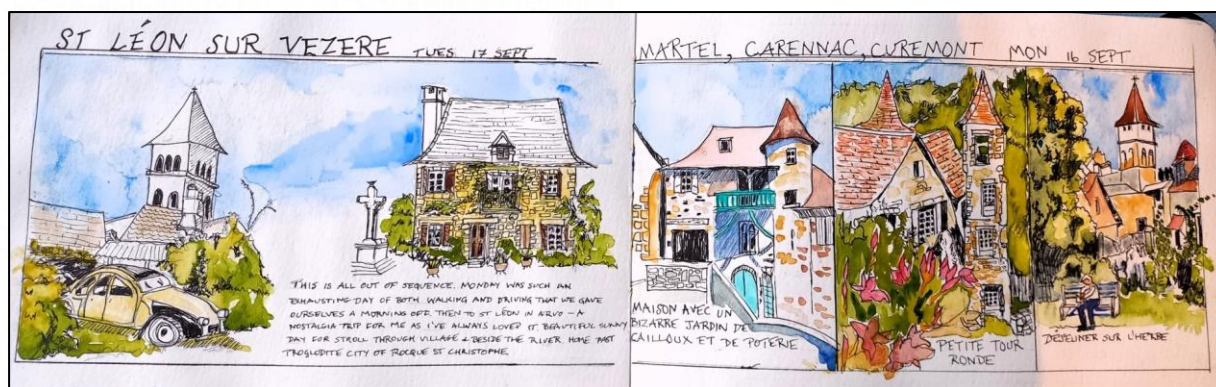 ST LÉON SUR VEZERE TUES 17 SEPT
THIS IS ALL OUT OF SEQUENCE. MONDAY WAS SUCH AN
EXHAUSTING DAY OF BOTH WALKING AND DRIVING THAT WE GAVE
OURSELVES A MORNING OFF. THEN TO ST LÉON IN ARVO – A
NOSTALGIA TRIP FOR ME AS I'VE ALWAYS LOVED IT. BEAUTIFUL SUNNY
DAY FOR STROLL THROUGH VILLAGE & BESIDE THE RIVER. HOME PAST
TROGLODITE CITY OF ROCQUE ST CHRISTOPHE.
MARTEL, CARENNAC, CUREMONT MON 16 SEPT
MAISON AVEC UN
BIZARRE JARDIN DE
CAILLOUX ET DE POTERIE
PETITE TOUR
RONDE
DEJEUNER SUR L'HERBE